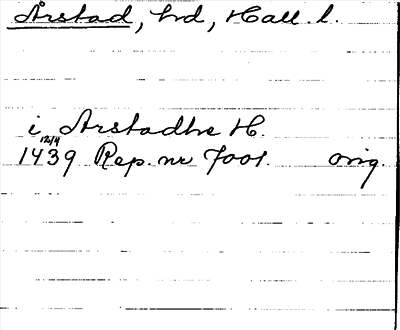 Årstad, hd, Hall. l.
i Arstadhe H.
12/4
1439 Rep. nr 7001. orig.